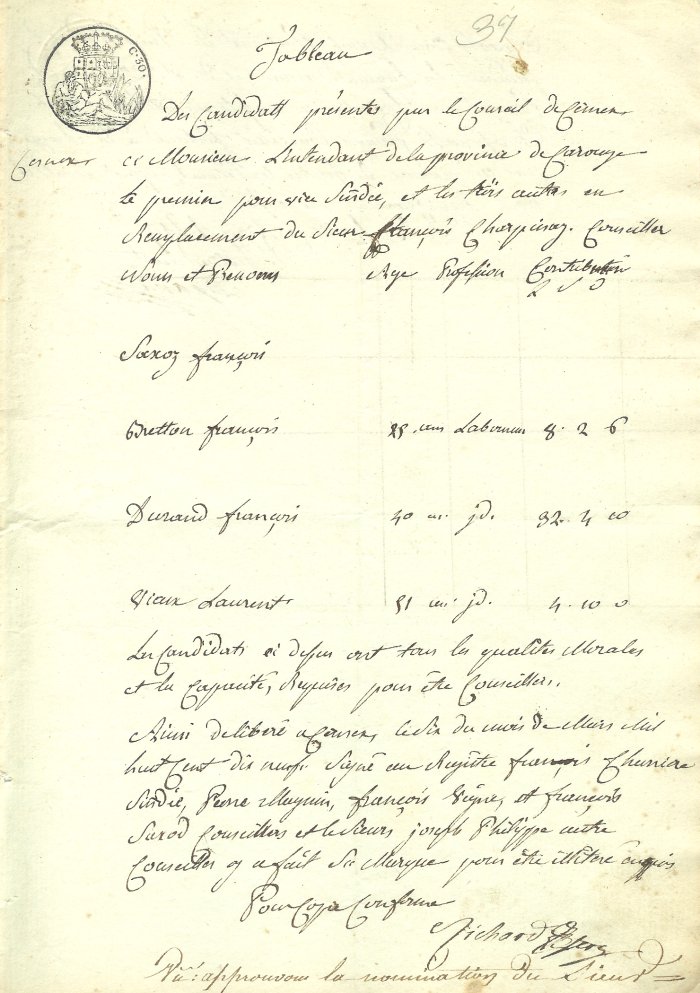 39
C. 30.
Tableau
Des Candidats présentés par le Conseil de Cernex
Cernex
a Monsieur L'intendant de la province de Carouge
le premier pour vice Sindic, et les trois autres en
Remplacement du Sieur françois Charpinaz. Conseiller
Noms et Prenoms Age Profession Contribution
L S D
Saxoz françois
Bretton françois ans Laboureur 8. 2 6
Durand françois 40 an. jd. 32. 4 00
Viaux Laurent 51 an. jd. 4. 10 0
Les Candidats ci dessus ont tous les qualités Morales
et la Capacité, Requises pour être Conseillers.
Ainsi deliberé a Cernex, le Six du mois de Mars Mil
huit Cent dix neuf. Signé au Régitre françois
Sindic, Pierre Magnin, françois Vigne, et françois
Conseillers et le Sieurs joseph Philippe autre
Conseiller y a fait Sa Marque pour être illitéré
Pour Copie Conforme
Richard
Vu: approuvons la nomination du Sieur